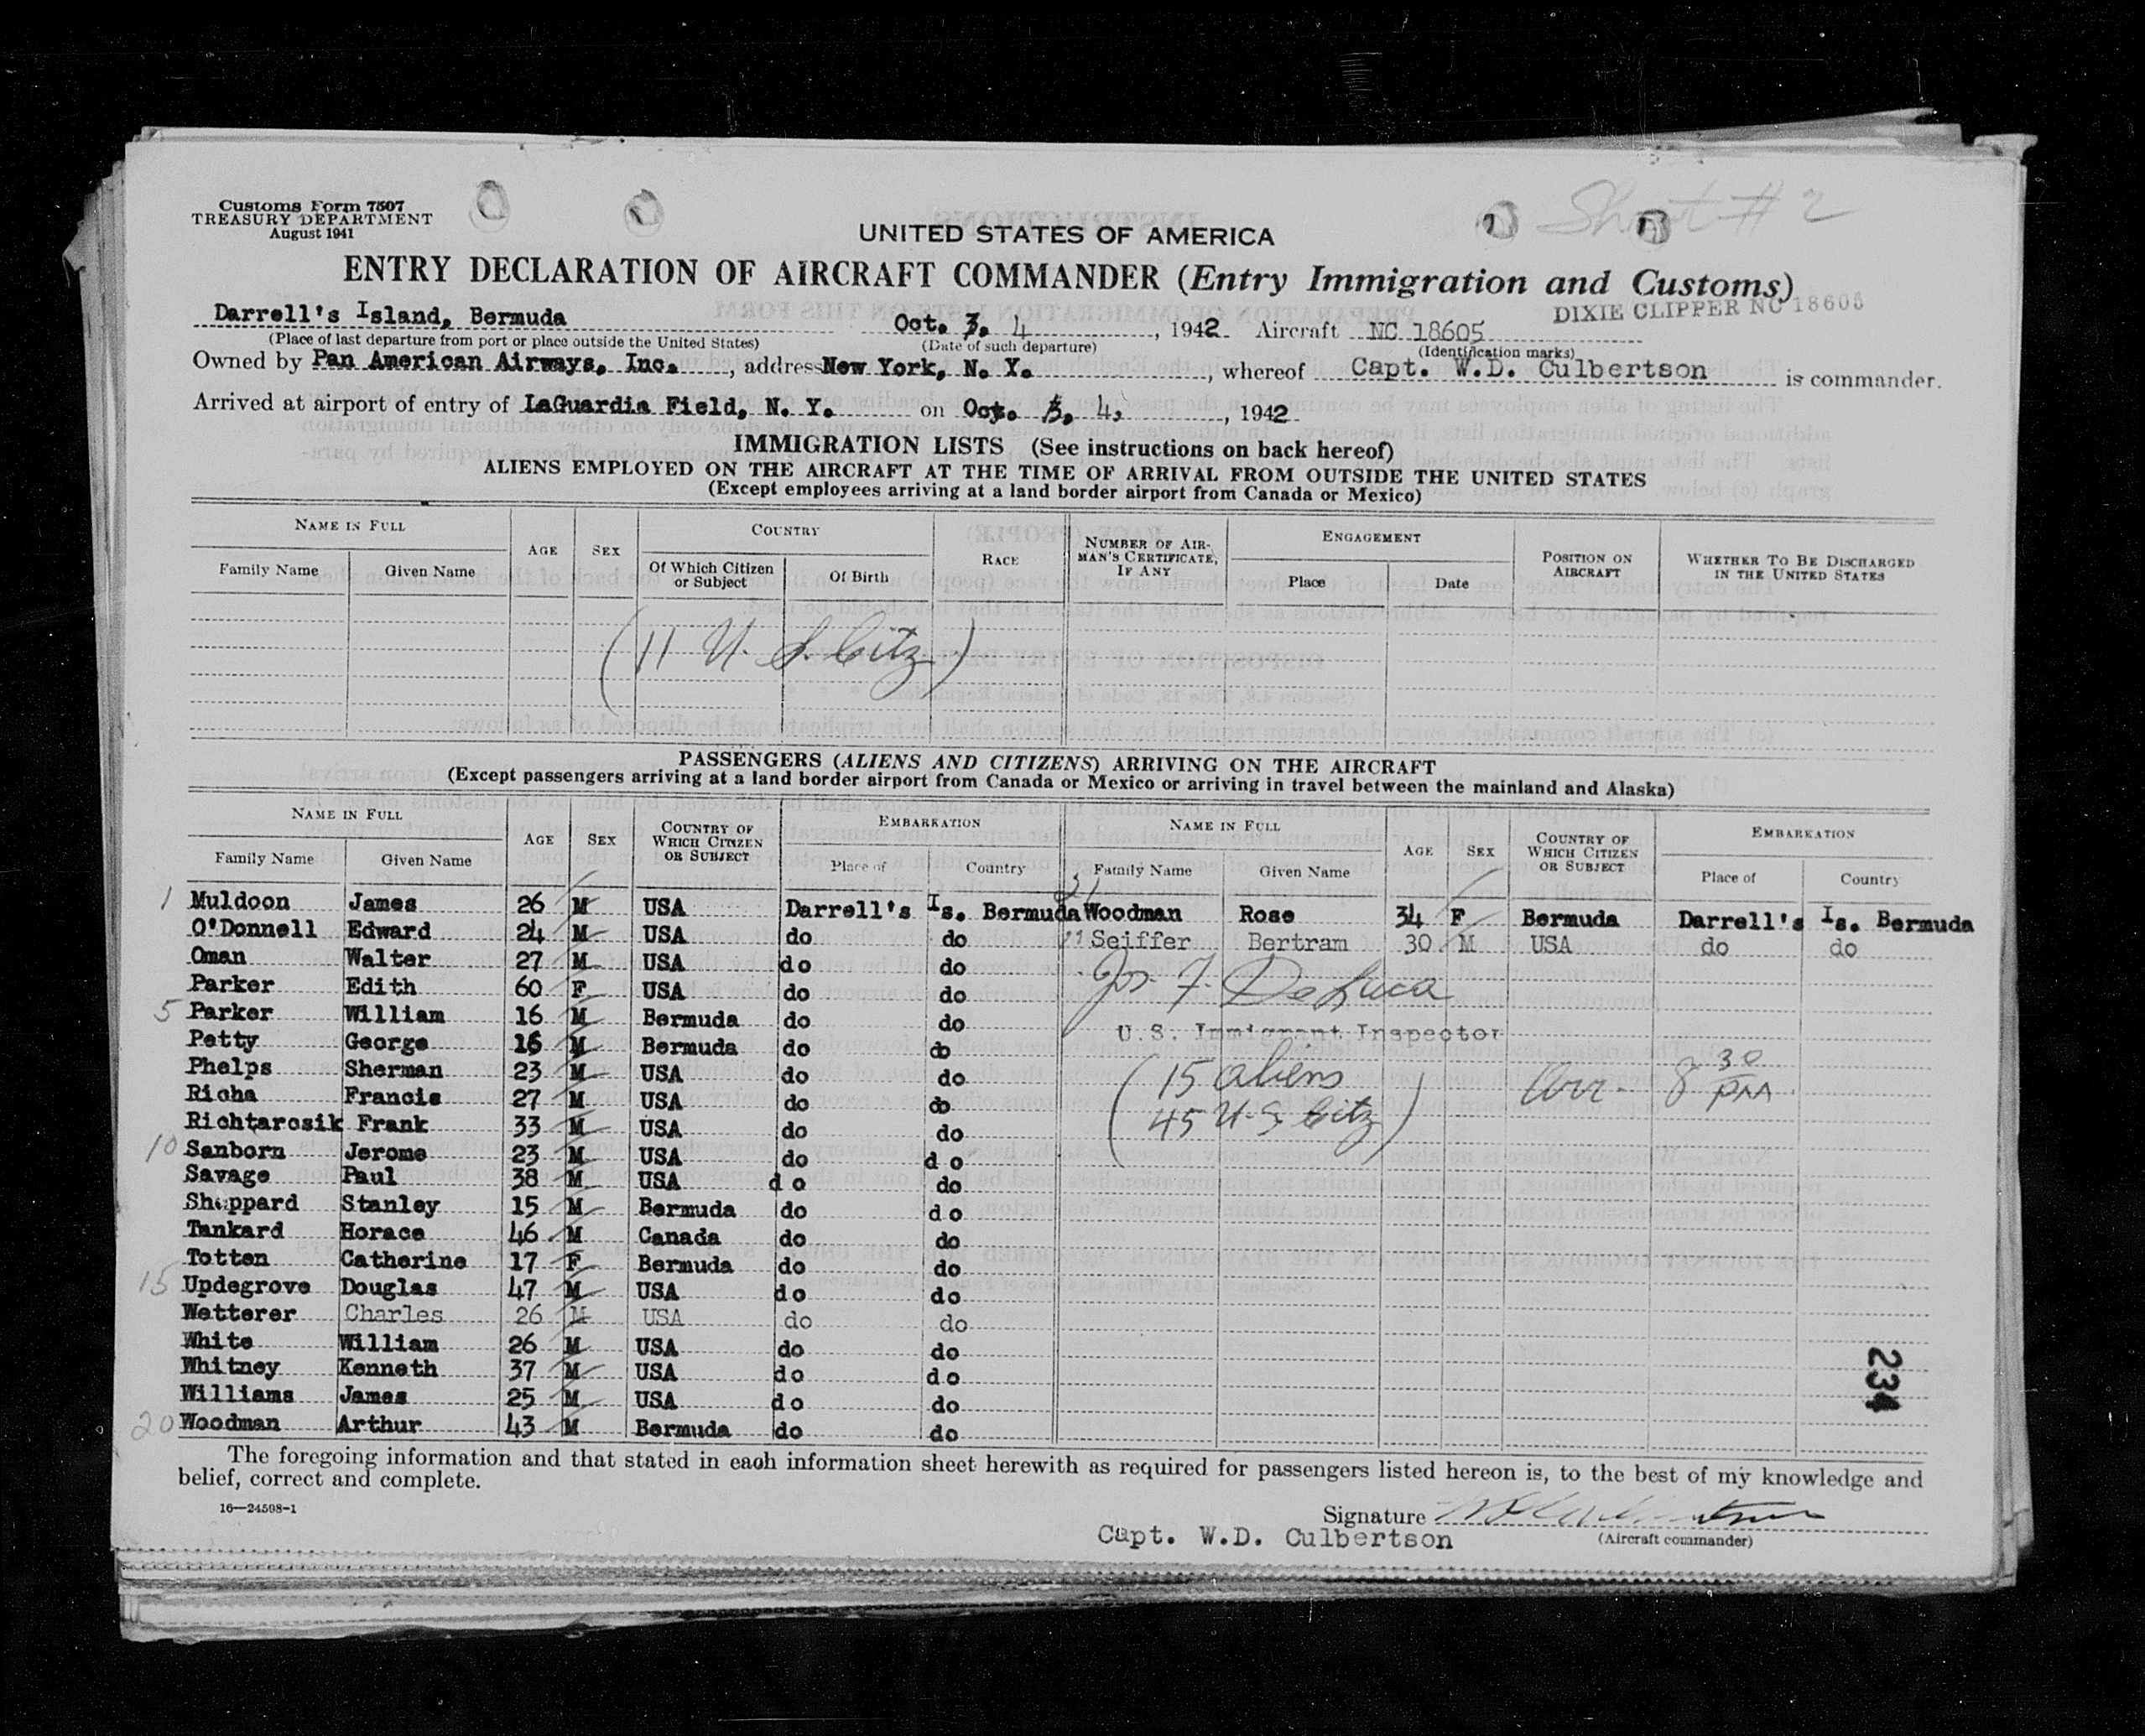 Customs Form 7507
TREASURY DEPARTMENT
August 1941
Sheet # 2
UNITED STATES OF AMERICA
ENTRY DECLARATION OF AIRCRAFT COMMANDER (Entry Immigration and Customs)
DIXIE CLIPPER NC 18605
Darrell's Island, Bermuda Oct. 3. 4, 1942 Aircraft NC 18605
(Place of last departure from port or place outside the United States) (Date of such departure) (Identification marks)
Owned by Pan American Airways, Inc., address New York, N. Y., whereof Capt. W.D. Culbertson is commander.
Arrived at airport of entry of LaGuardia Field, N. Y. on Oct. 4, 1942
IMMIGRATION LISTS (See instructions on back hereof)
ALIENS EMPLOYED ON THE AIRCRAFT AT THE TIME OF ARRIVAL FROM OUTSIDE THE UNITED STATES
(Except employees arriving at a land border airport from Canada or Mexico)
NAME IN FULL AGE SEX COUNTRY RACE NUMBER OF AIRMAN'S CERTIFICATE, IF ANY ENGAGEMENT POSITION ON AIRCRAFT WHETHER TO BE DISCHARGED IN THE UNITED STATES
Family Name Given Name Of Which Citizen or Subject Of Birth Place Date
(11 U. S. Citz.)
PASSENGERS (ALIENS AND CITIZENS) ARRIVING ON THE AIRCRAFT
(Except passengers arriving at a land border airport from Canada or Mexico or arriving in travel between the mainland and Alaska)
NAME IN FULL AGE SEX COUNTRY OF WHICH CITIZEN OR SUBJECT EMBARKATION NAME IN FULL AGE SEX COUNTRY OF WHICH CITIZEN OR SUBJECT EMBARKATION
Family Name Given Name Place of Country Family Name Given Name Place of Country
1 Muldoon James 26 M USA Darrell's Is. Bermuda 21 Woodman Rose 34 F Bermuda Darrell's Is. Bermuda
O'Donnell Edward 24 M USA do do Seiffer Bertram 30 M USA do do
Oman Walter 27 M USA do do
Parker Edith 60 F USA do do Jos. F. DeLuca
5 Parker William 16 M Bermuda do do U.S. Immigrant Inspector
Petty George 16 M Bermuda do do
Phelps Sherman 23 M USA do do (15 aliens Arr. 8 30 PM
Richa Francis 27 M USA do do 45 U.S. Citz)
Richtarosik Frank 33 M USA do do
10 Sanborn Jerome 23 M USA do do
Savage Paul 38 M USA do do
Sheppard Stanley 15 M Bermuda do do
Tankard Horace 46 M Canada do do
Totten Catherine 17 F Bermuda do do
15 Updegrove Douglas 47 M USA do do
Wetterer Charles 26 M USA do do
White William 26 M USA do do
Whitney Kenneth 37 M USA do do
Williams James 25 M USA do do
20 Woodman Arthur 43 M Bermuda do do
234
The foregoing information and that stated in each information sheet herewith as required for passengers listed hereon is, to the best of my knowledge and
belief, correct and complete.
16—24598-1
Signature W D Culbertson
Capt. W.D. Culbertson (Aircraft commander)